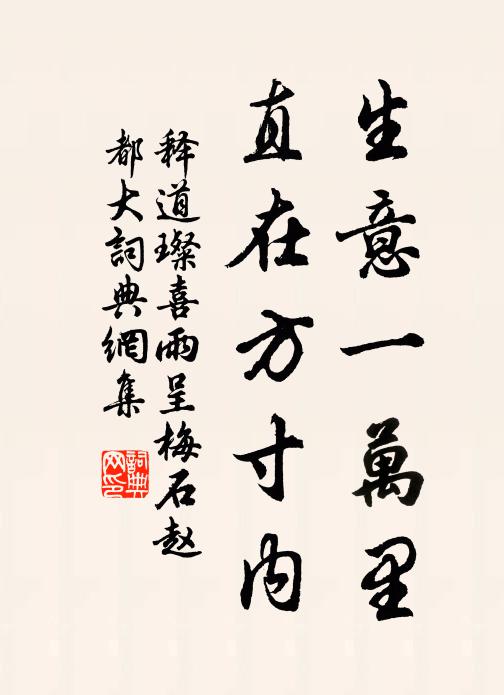 生意一萬里
直在方寸内
释道璨喜雨呈梅石赵
都大詞典網集
詞典网印